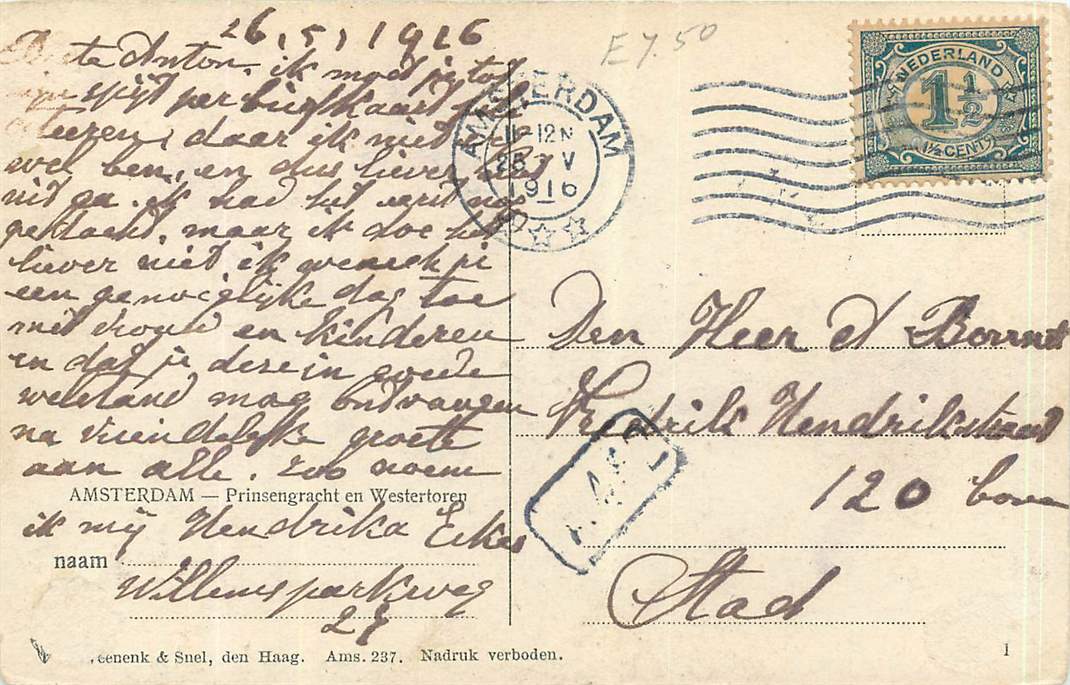 26, 5, 1916
Beste Anton, ik moet je tot
mijn spijt per briefkaart feli-
citeeren, daar ik niet
wel ben, en dus liever
niet ga. ik had het eerst nog
gedacht, maar ik doe het
liever niet ik wensch je
een genoegelijke dag toe
met vrouw en kinderen
en dat je deze in goede
welstand mag ontvangen
na vriendelijke groete
aan alle. zoo noem
AMSTERDAM — Prinsengracht en Westertoren
ik mij Hendrika Eikes
naam
Willemsparkweg
27
eenenk & Snel, den Haag. Ams. 237. Nadruk verboden.
E 7.50
AMSTERDAM
11-12N
26 V
1916
NEDERLAND
1½
1½ CENT
Den Heer A Bonnet
Fredrik Hendrikstraat
120 boven
Stad
1